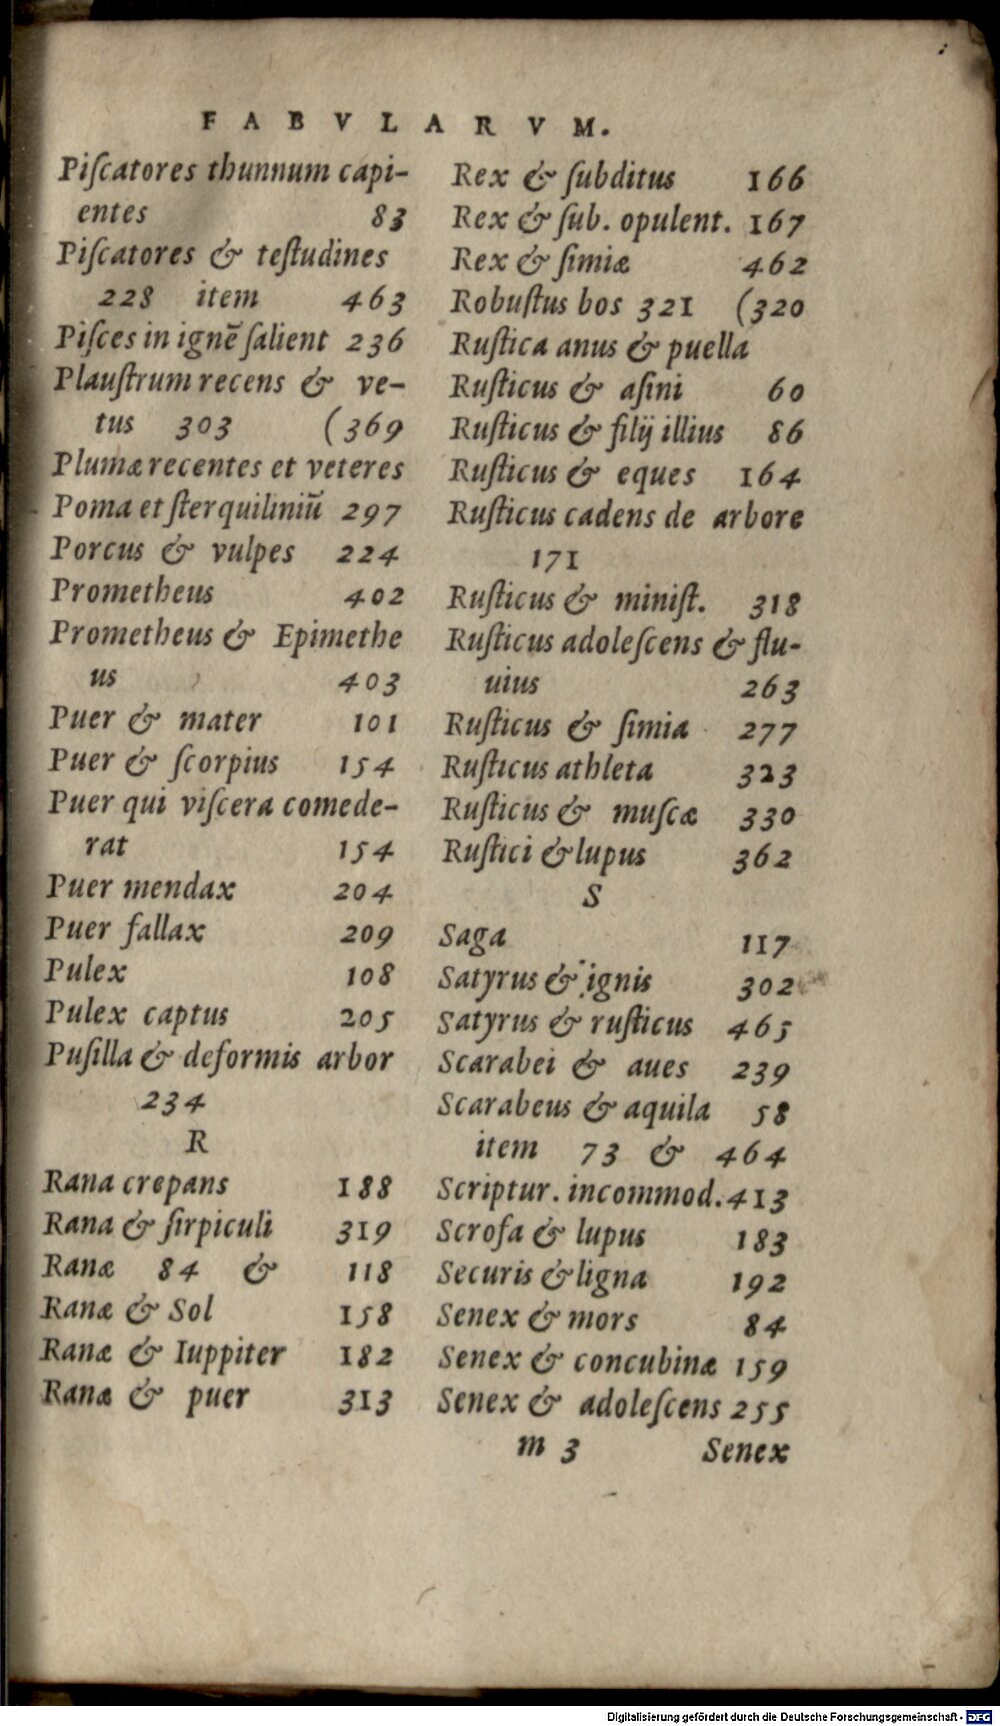 FABVLARVM.
Piſcatores thunnum capi-
entes 83
Piſcatores & teſtudines
228 item 463
Piſces in ignē ſalient 236
Plauſtrum recens & ve-
tus 303 (369
Plumæ recentes et veteres
Poma et ſterquiliniū 297
Porcus & vulpes 224
Prometheus 402
Prometheus & Epimethe
us 403
Puer & mater 101
Puer & ſcorpius 154
Puer qui viſcera comede-
rat 154
Puer mendax 204
Puer fallax 209
Pulex 108
Pulex captus 205
Puſilla & deformis arbor
234
R
Rana crepans 188
Rana & ſirpiculi 319
Ranæ 84 & 118
Ranæ & Sol 158
Ranæ & Iuppiter 182
Ranæ & puer 313
Rex & ſubditus 166
Rex & ſub. opulent. 167
Rex & ſimiæ 462
Robuſtus bos 321 (320
Ruſtica anus & puella
Ruſticus & aſini 60
Ruſticus & filij illius 86
Ruſticus & eques 164
Ruſticus cadens de arbore
171
Ruſticus & miniſt. 318
Ruſticus adoleſcens & flu-
uius 263
Ruſticus & ſimia 277
Ruſticus athleta 323
Ruſticus & muſcæ 330
Ruſtici & lupus 362
S
Saga 117
Satyrus & ignis 302
Satyrus & ruſticus 465
Scarabei & aues 239
Scarabeus & aquila 58
item 73 & 464
Scriptur. incommod. 413
Scrofa & lupus 183
Securis & ligna 192
Senex & mors 84
Senex & concubinæ 159
Senex & adoleſcens 255
m 3 Senex
Digitalisierung gefördert durch die Deutsche Forschungsgemeinschaft - DFG